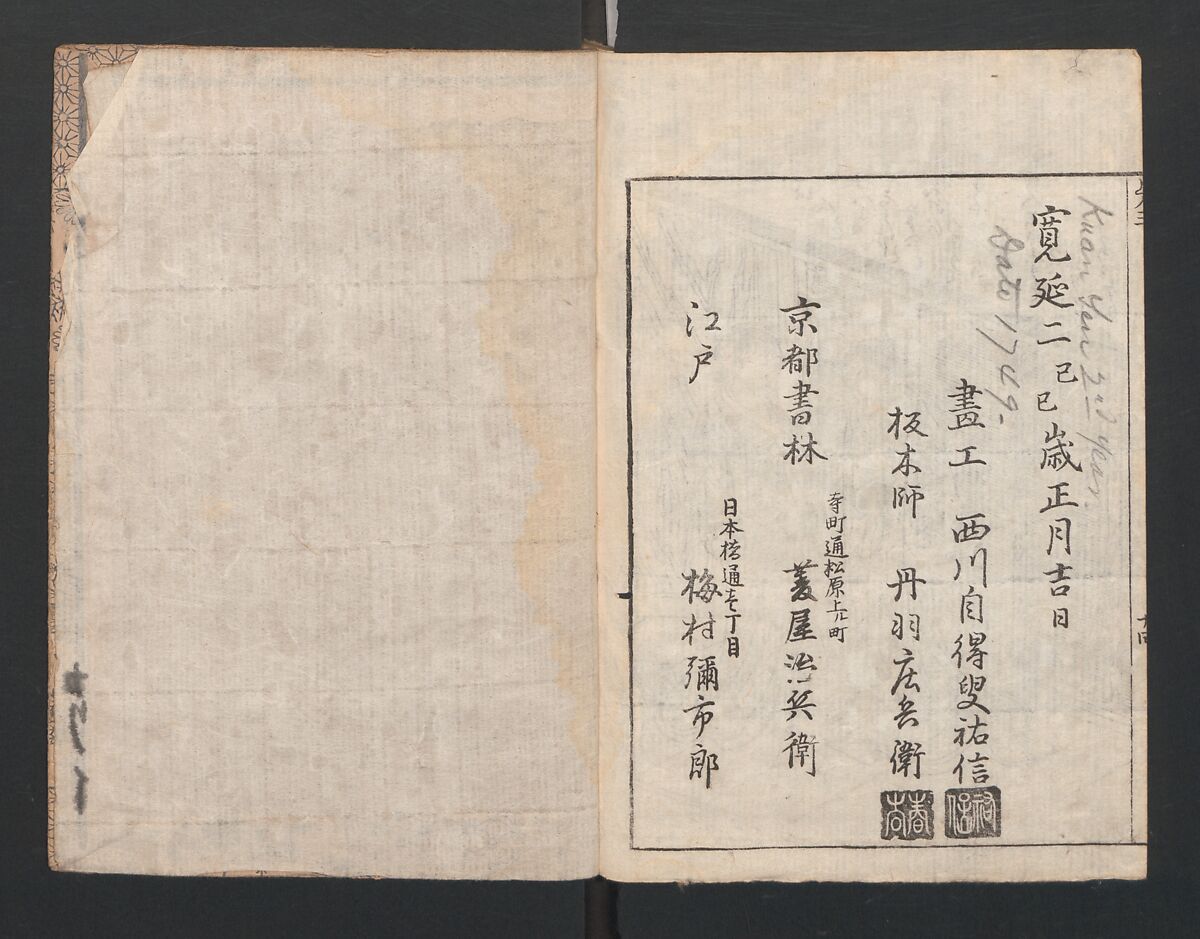 寛延二己巳歳正月吉日
畫工 西川自得叟祐信
祐信
板木師 丹羽庄兵衛
京都書林
寺町通松原上ル町
菱屋治兵衛
江戸
日本橋通壱丁目
梅村彌市郎
十四
Kuan Yen 2nd year.
Date 1749.